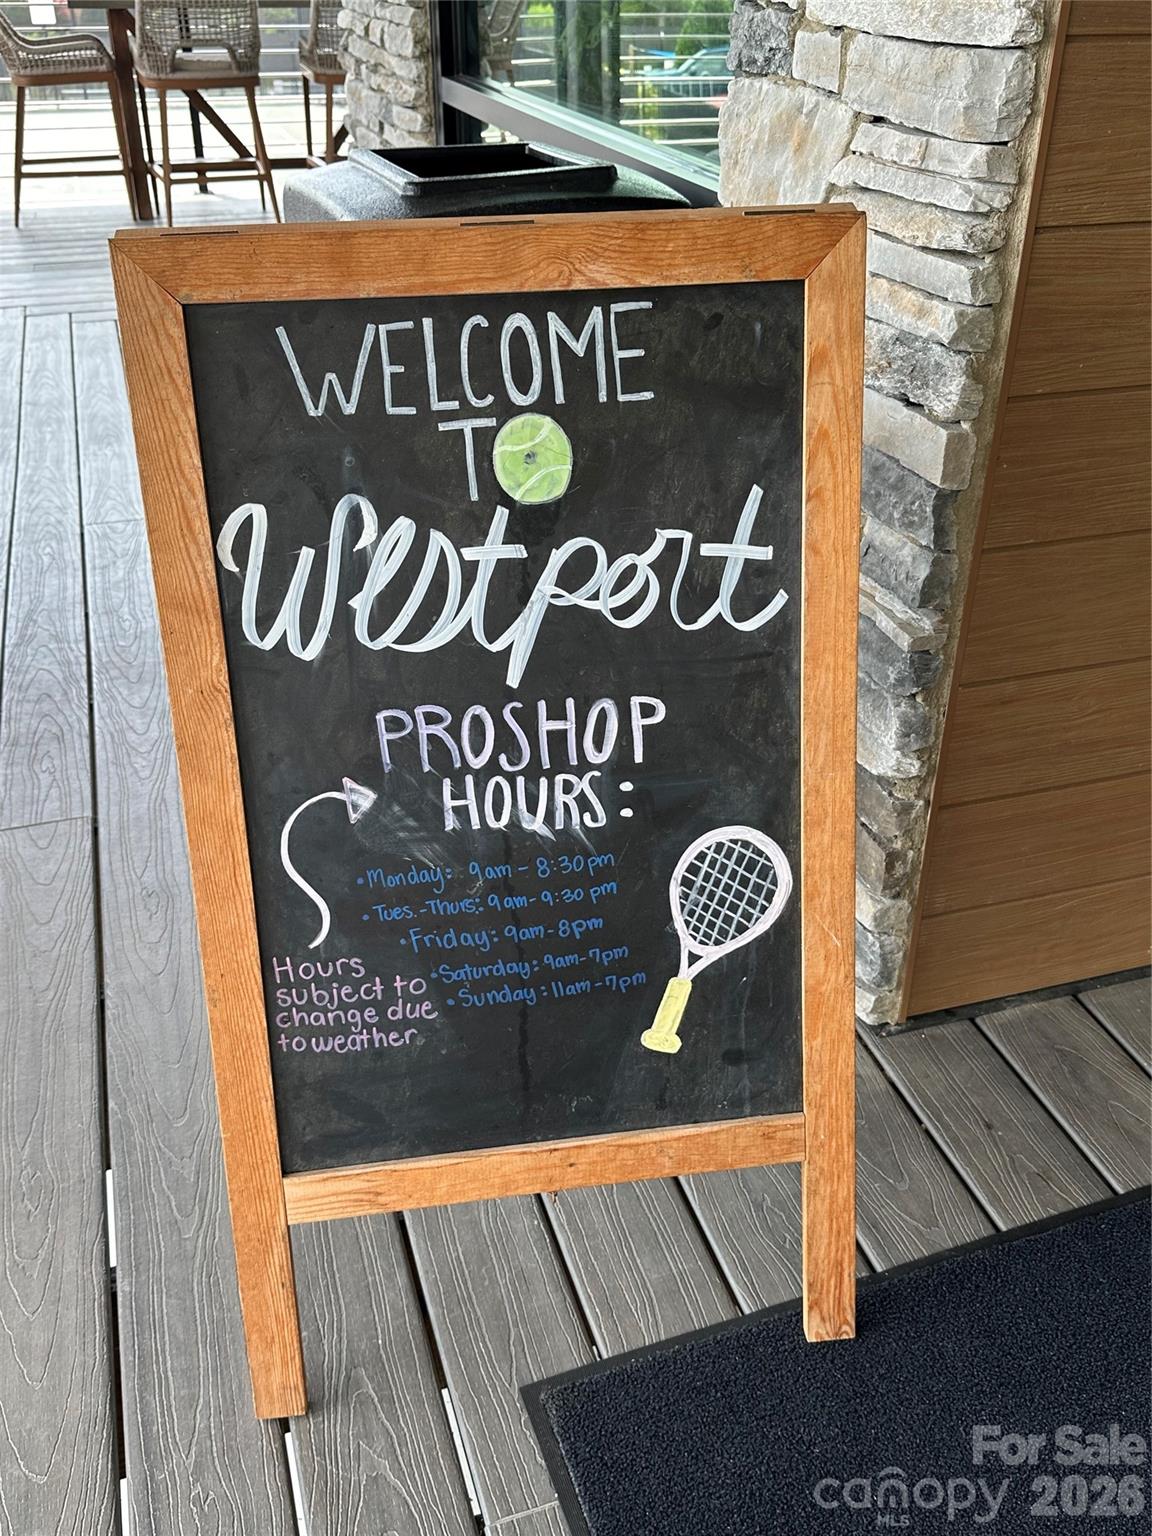 WELCOME
TO
Westport
PROSHOP
HOURS:
• Monday: 9am - 8:30pm
• Tues.-Thurs: 9am - 9:30 pm
• Friday: 9am-8pm
• Saturday: 9am-7pm
• Sunday: 11am-7pm
Hours
subject to
change due
to weather
For Sale
canopy 2026
MLS